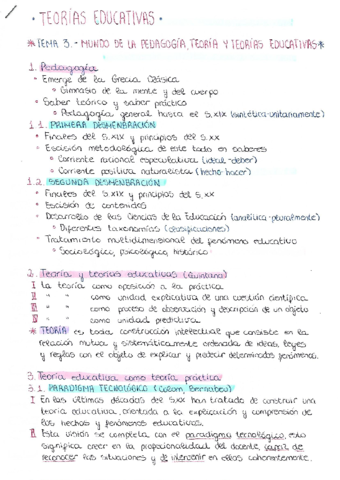 • TEORÍAS EDUCATIVAS •
* TEMA 3.- MUNDO DE LA PEDAGOGÍA, TEORÍA Y TEORÍAS EDUCATIVAS *
1. Pedagogía
• Emerge de la Grecia Clásica
• Gimnasio de la mente y del cuerpo
• Saber teórico y saber práctico
• Pedagogía general hasta el S.XIX (sintética-unitariamente)
1.1. PRIMERA DESMEMBRACIÓN
• Finales del S.XIX y principios del S.XX
• Escisión metodológica de este todo en saberes
• Corriente racional especulativa (ideal-deber)
• Corriente positiva naturalista (hecho-hacer)
1.2. SEGUNDA DESMEMBRACIÓN
• Finales del S.XIX y principios del S.XX
• Escisión de contenidos
• Desarrollo de las Ciencias de la Educación (analítica-pluralmente)
• Diferentes taxonomías (clasificaciones)
• Tratamiento multidimensional del fenómeno educativo
• Sociológico, psicológico, histórico
2. Teoría y teorías educativas (Quintana)
I La teoría como oposición a la práctica
II " " como unidad explicativa de una cuestión científica
III " " como proceso de observación y descripción de un objeto
IV " " como unidad predictiva
* TEORÍA es toda construcción intelectual que consiste en la
relación mutua y sistemáticamente ordenada de ideas, leyes
y reglas con el objeto de explicar y predecir determinados fenómenos.
3. Teoría educativa como teoría práctica
3.1. PARADIGMA TECNOLÓGICO (Colom, Bernabeu)
I En las últimas décadas del S.XX han tratado de construir una
teoría educativa orientada a la explicación y comprensión de
los hechos y fenómenos educativos.
II Esta visión se completa con el paradigma tecnológico, esto
significa creer en la proporcionalidad del docente, capaz de
reconocer las situaciones y de intervenir en ellas coherentemente.